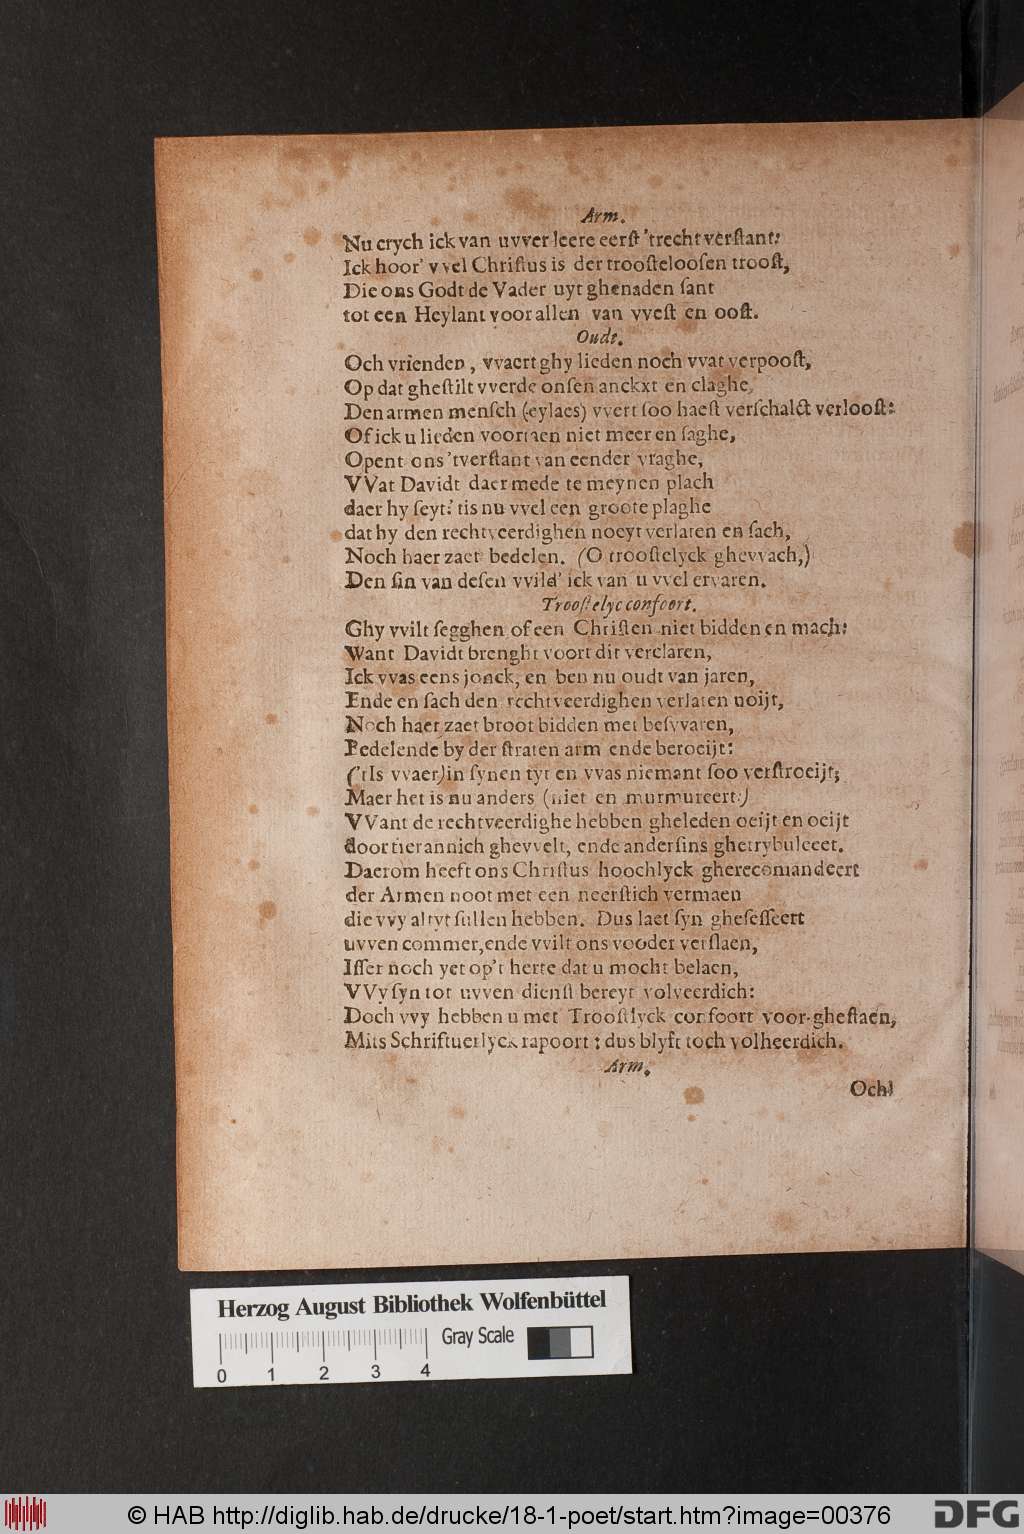 Arm.
Nu crych ick van uvver leere eerſt 'trecht verſtant:
Ick hoor' vvel Chriſtus is der trooſteloofen trooſt,
Die ons Godt de Vader uyt ghenaden ſant
tot een Heylant voor allen van vveſt en ooſt.
Oude.
Och vrienden, vvaert ghy lieden noch vvat verpooſt,
Op dat gheſtilt vverde onſen anckxt en claghe,
Den armen menſch (eylaes) vvert ſoo haeſt verſchalct verlooſt:
Of ick u lieden voortaen niet meer en ſaghe,
Opent ons 'tverſtant van eender vraghe,
VVat Davidt daer mede te meynen plach
daer hy ſeyt: tis nu vvel een groote plaghe
dat hy den rechtveerdighen noeyt verlaten en ſach,
Noch haer zaet bedelen. (O trooſtelyck ghevvach,)
Den ſin van deſen vvild' ick van u vvel ervaren.
Trooſtelyc confoort.
Ghy vvilt ſegghen of een Chriſten niet bidden en mach:
Want Davidt brenght voort dit verclaren,
Ick vvas eens jonck, en ben nu oudt van jaren,
Ende en ſach den rechtveerdighen verlaten noijt,
Noch haer zaet broot bidden met beſvvaren,
Bedelende by der ſtraten arm ende beroeijt:
('tIs vvaer) in ſynen tyt en vvas niemant ſoo verſtroeijt;
Maer het is nu anders (niet en murmureert:)
VVant de rechtveerdighe hebben gheleden oeijt en oeijt
door tierannich ghevvelt, ende anderſins ghetrybuleeet.
Daerom heeft ons Chriſtus hoochlyck gherecomandeert
der Armen noot met een neerſtich vermaen
die vvy altyt ſullen hebben. Dus laet ſyn gheſeſſeert
uvven commer, ende vvilt ons vooder verſlaen,
Iſſer noch yet op't herte dat u mocht belaen,
VVy ſyn tot uvven dienſt bereyt volveerdich:
Doch vvy hebben u met Trooſtlyck confoort voor-gheſtaen,
Mits Schriftuerlyck rapoort: dus blyft toch volheerdich.
Arm.
Och!
Herzog August Bibliothek Wolfenbüttel
Gray Scale
0 1 2 3 4
© HAB http://diglib.hab.de/drucke/18-1-poet/start.htm?image=00376
DFG